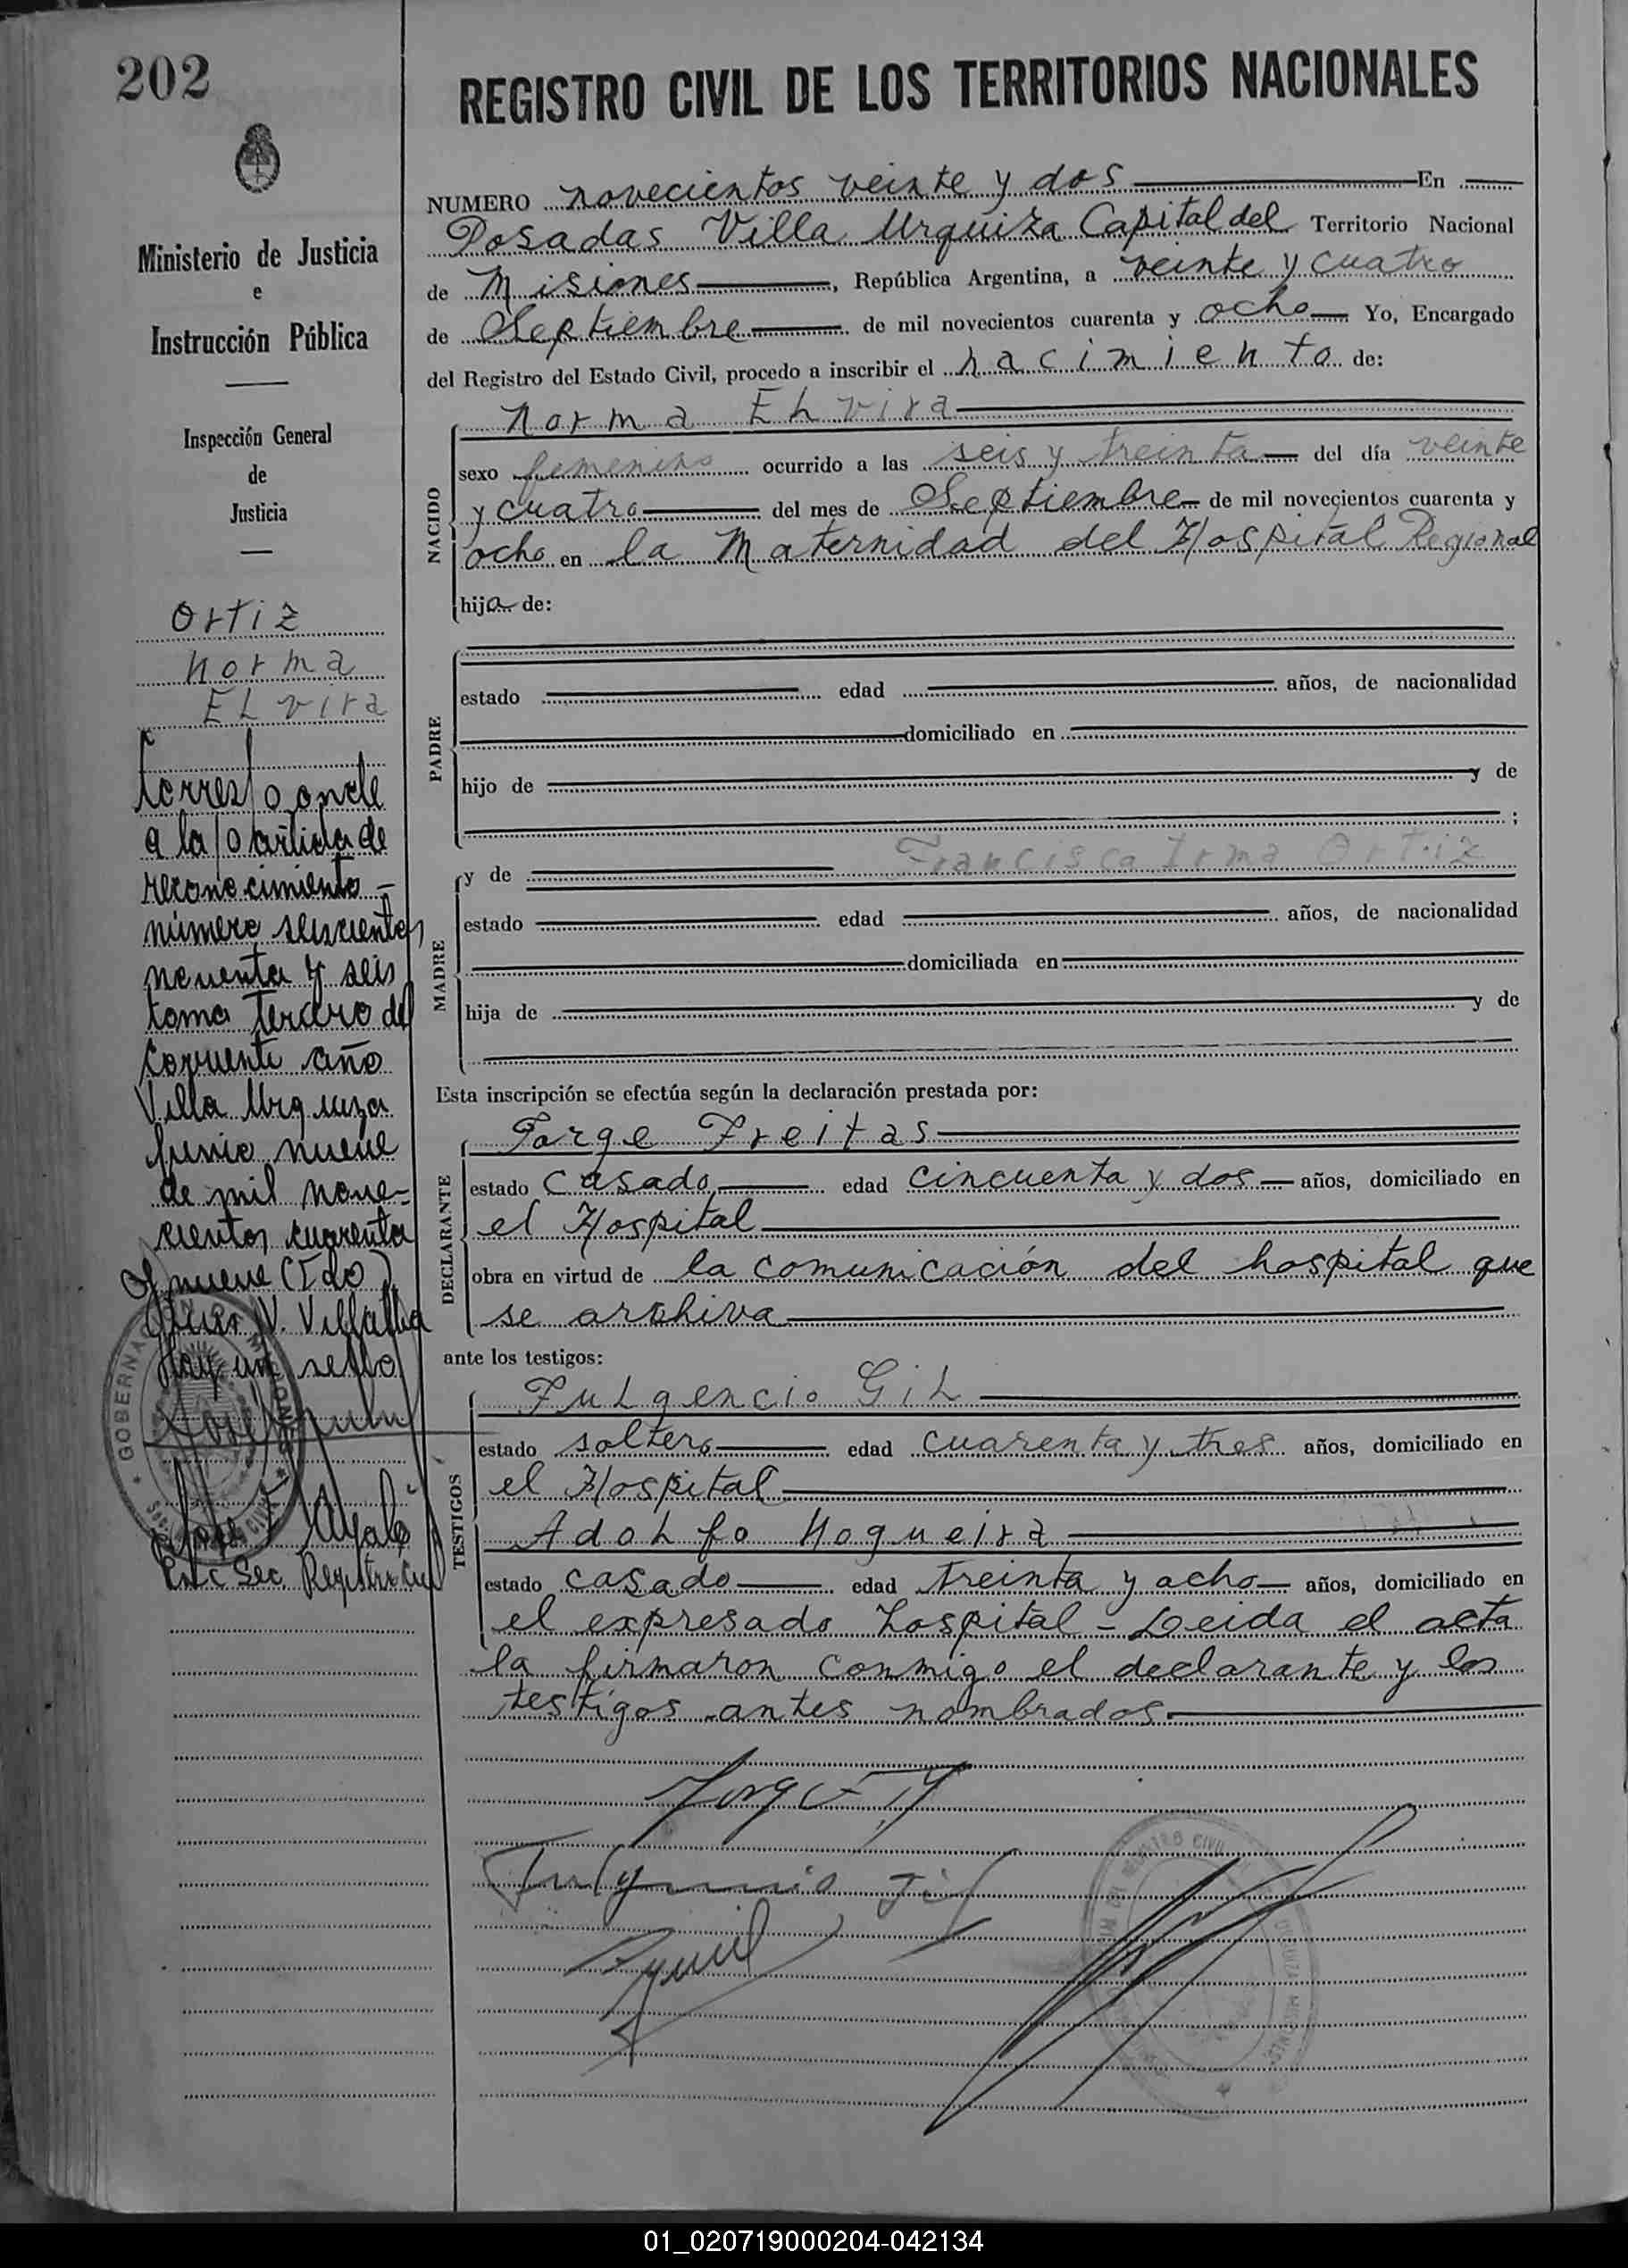 202
REGISTRO CIVIL DE LOS TERRITORIOS NACIONALES
Ministerio de Justicia
e
Instrucción Pública
Inspección General
de
Justicia
Ortiz
Norma
Elvira
Corresponde
a la partida de
reconocimiento -
número seiscientos
noventa y seis
tomo tercero del
corriente año
Villa Urquiza
Junio nueve
de mil nove=
cientos cuarenta
y nueve (Fdo)
V. Villalba
Hay un sello
Ayala
Enc Sec. Registro Civil
NUMERO novecientos veinte y dos En
Posadas Villa Urquiza Capital del Territorio Nacional
de Misiones, República Argentina, a veinte y cuatro
de Septiembre de mil novecientos cuarenta y ocho Yo, Encargado
del Registro del Estado Civil, procedo a inscribir el nacimiento de:
NACIDO
Norma Elvira
sexo femenino ocurrido a las seis y treinta del día veinte
y cuatro del mes de Septiembre de mil novecientos cuarenta y
ocho en la Maternidad del Hospital Regional
hija de:
PADRE
estado edad años, de nacionalidad
domiciliado en
hijo de y de
;
MADRE
y de Francisca Irma Ortiz
estado edad años, de nacionalidad
domiciliada en
hija de y de
Esta inscripción se efectúa según la declaración prestada por:
DECLARANTE
Jorge Freitas
estado casado edad cincuenta y dos años, domiciliado en
el Hospital
obra en virtud de la comunicación del hospital que
se archiva
ante los testigos:
TESTIGOS
Fulgencio Gil
estado soltero edad cuarenta y tres años, domiciliado en
el Hospital
Adolfo Nogueira
estado casado edad treinta y ocho años, domiciliado en
el expresado hospital - Leida el acta
la firmaron conmigo el declarante y los
testigos antes nombrados.
Fulgencio Gil
01_020719000204-042134